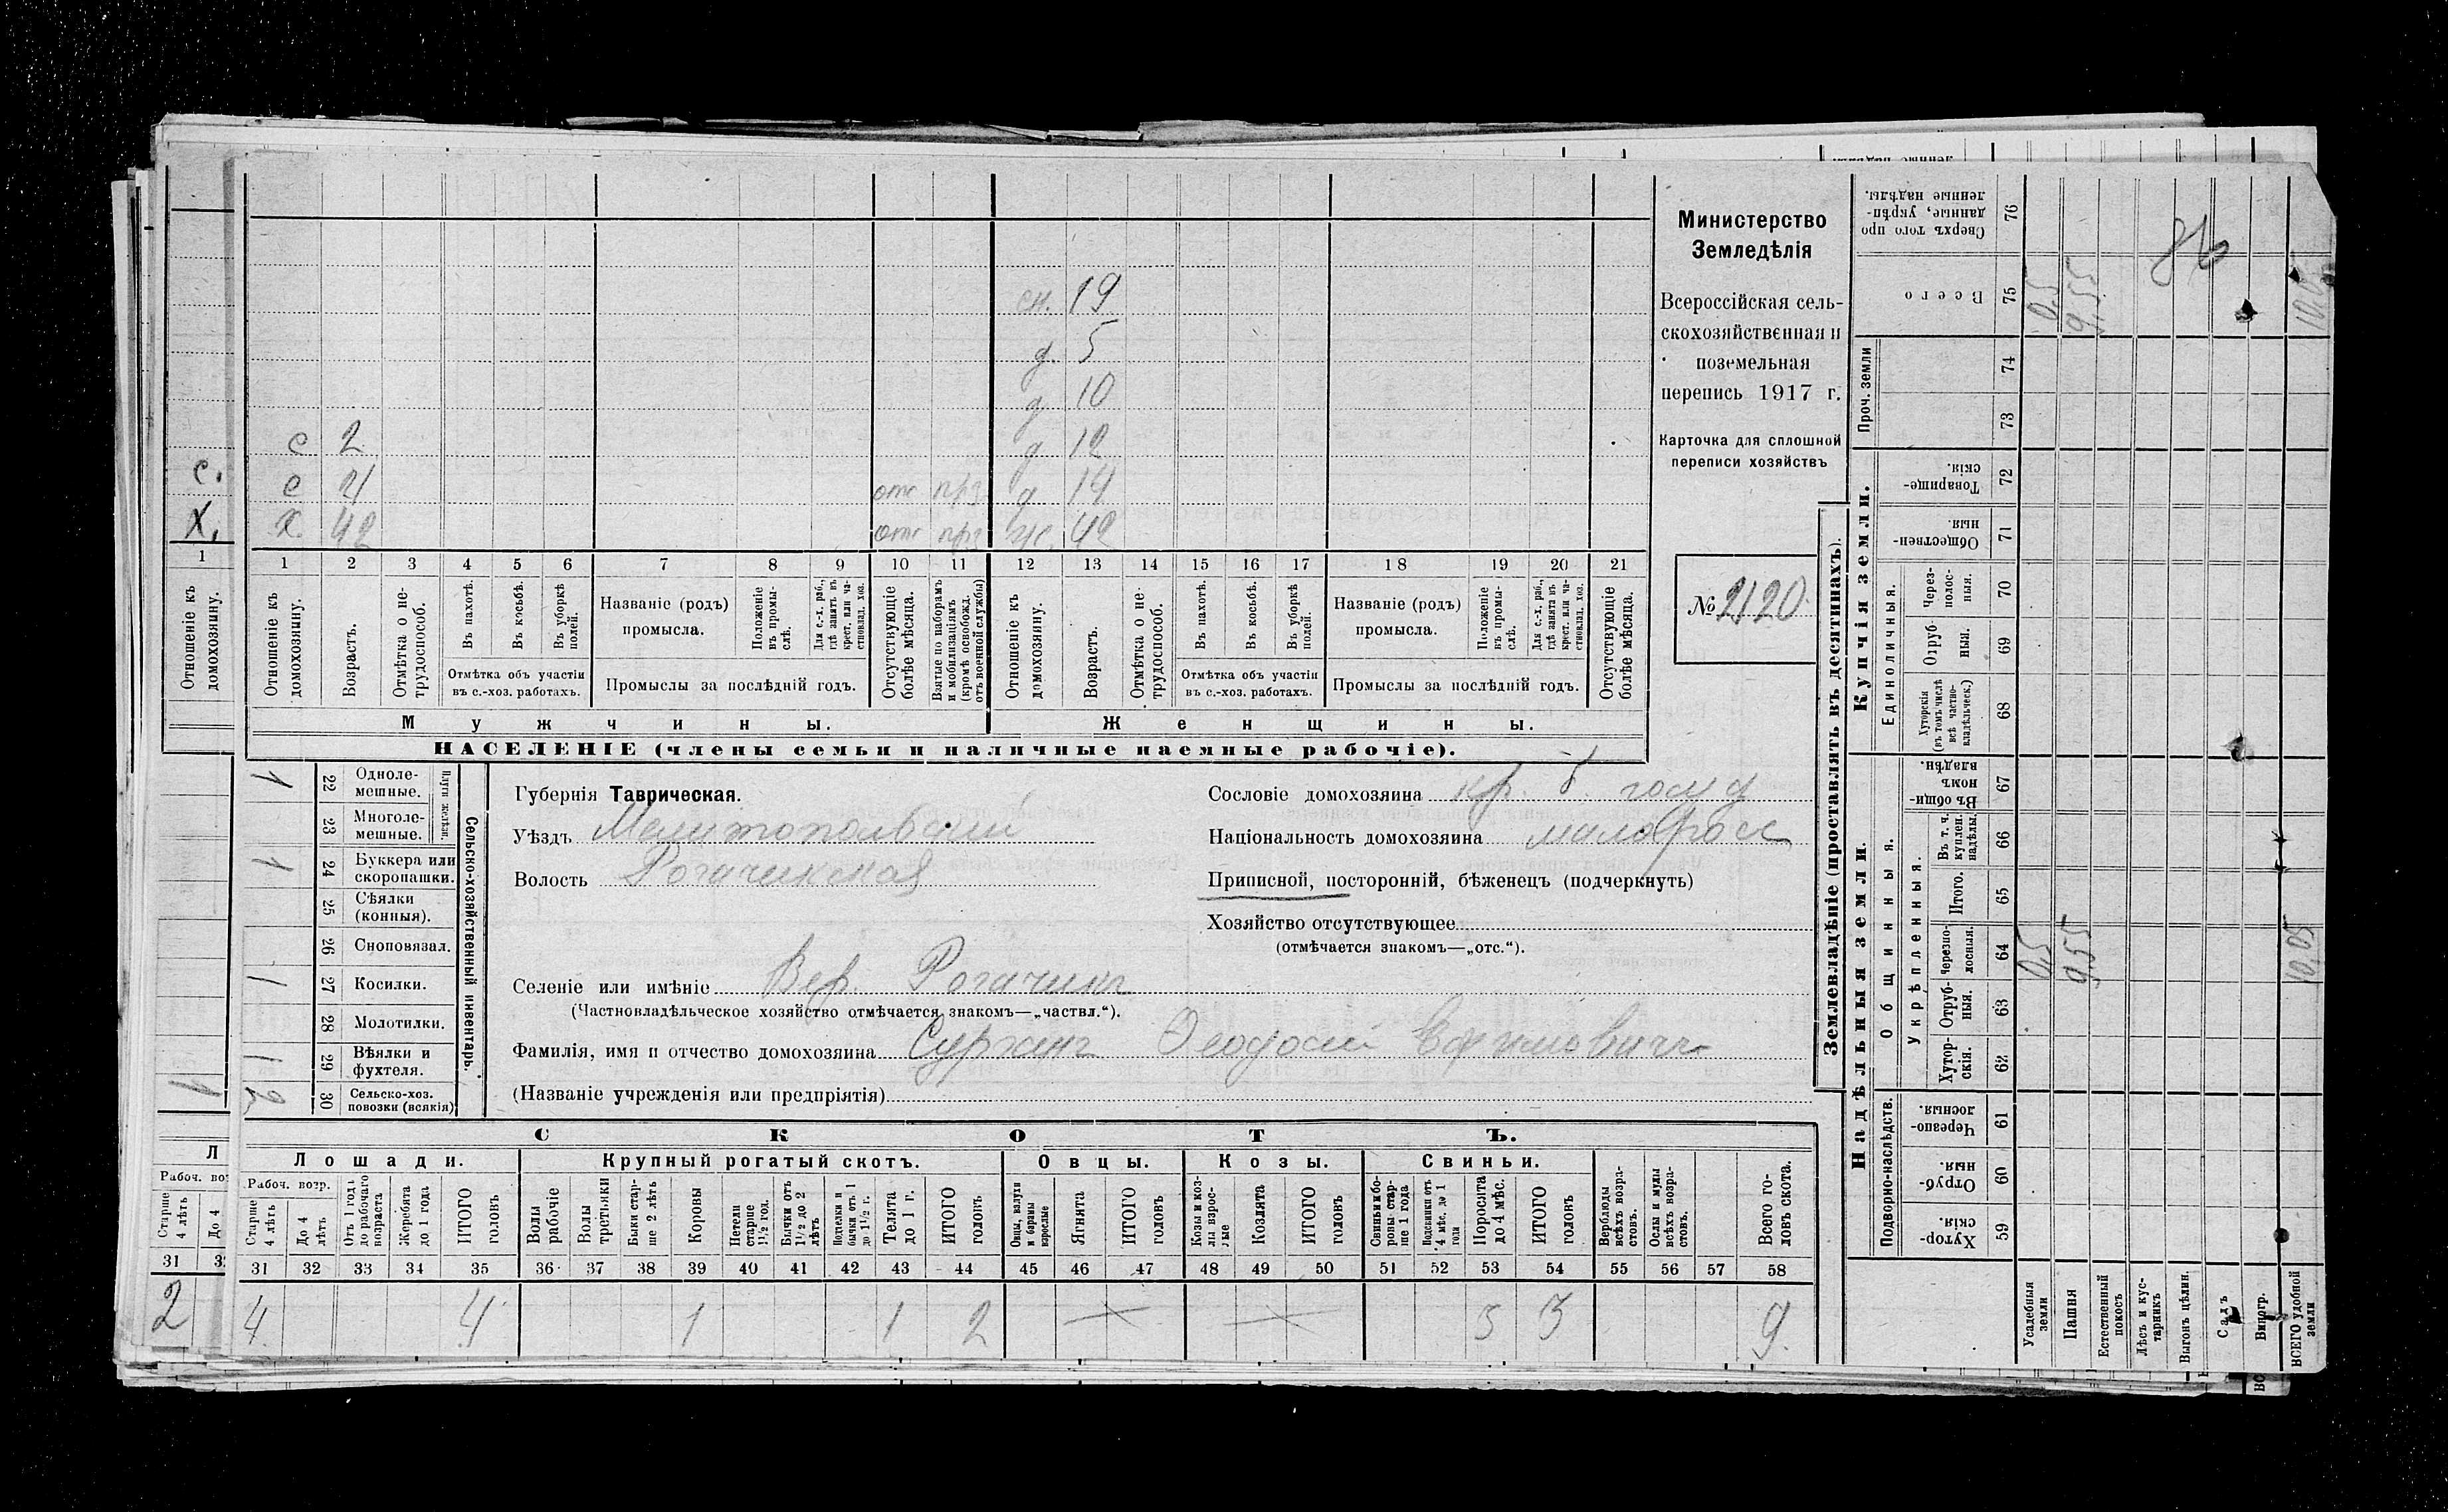 Министерство
Земледѣлія
Всероссійская сель-
скохозяйственная и
поземельная
перепись 1917 г.
Карточка для сплошной
переписи хозяйствъ
№ 2120
сн. 19
д. 5
д 10
с 2 д 12
с 21 отс прз д 14
х. 42 отс прз ж. 42
с.
Х.
1 2 3 4 5 6 7 8 9 10 11 12 13 14 15 16 17 18 19 20 21
Отношеніе къ домохозяину.
Возрастъ.
Отмѣтка о не-трудоспособ.
Въ пахотѣ.
Въ косьбѣ.
Въ уборкѣ полей.
Отмѣтка объ участіи въ с.-хоз. работахъ.
Названіе (родъ) промысла.
Положеніе въ промы-слѣ.
Для с.-х. раб., гдѣ занятъ въ крест. или ча-стновлад. хоз.
Промыслы за послѣдній годъ.
Отсутствующіе болѣе мѣсяца.
Взятые по наборамъ и мобилизаціямъ (кромѣ освобожд. отъ военной службы)
Отношеніе къ домохозяину.
Возрастъ.
Отмѣтка о не-трудоспособ.
Въ пахотѣ.
Въ косьбѣ.
Въ уборкѣ полей.
Отмѣтка объ участіи въ с.-хоз. работахъ.
Названіе (родъ) промысла.
Положеніе въ промы-слѣ.
Для с.-х. раб., гдѣ занята въ крест. или ча-стновлад. хоз.
Промыслы за послѣдній годъ.
Отсутствующіе болѣе мѣсяца.
Мужчины. Женщины.
НАСЕЛЕНІЕ (члены семьи и наличные наемные рабочіе).
Сельско-хозяйственный инвентарь.
Плуги желѣзн.
1 22 Одноле-мешные.
23 Многоле-мешные.
1 24 Буккера или скоропашки.
25 Сѣялки (конныя).
26 Сноповязал.
1 27 Косилки.
28 Молотилки.
1 29 Вѣялки и фухтеля.
2 30 Сельско-хоз. повозки (всякія)
Губернія Таврическая.
Уѣздъ Мелитопольскій
Волость Рогачикская
Селеніе или имѣніе Вер. Рогачикъ
(Частновладѣльческое хозяйство отмѣчается знакомъ—„частвл.“).
Фамилія, имя и отчество домохозяина Сурганъ Ѳеодосій Ефимовичъ
(Названіе учрежденія или предпріятія)
Сословіе домохозяина кр. б.
Національность домохозяина малоросс
Приписной, посторонній, бѣженецъ (подчеркнуть)
Хозяйство отсутствующее
(отмѣчается знакомъ—„отс.“).
СКОТЪ.
Лошади. Крупный рогатый скотъ. Овцы. Козы. Свиньи.
Рабоч. возр.
Старше 4 лѣтъ
До 4 лѣтъ
Отъ 1 года до рабочаго возраста
Жеребята до 1 года
ИТОГО головъ
Волы рабочіе
Волы третьяки
Быки стар-ше 2 лѣтъ
Коровы
Нетели старше 1½ год.
Бычки отъ 1½ до 2 лѣтъ
Подтелки и бычки отъ 1 до 1½ г.
Телята до 1 г.
ИТОГО головъ
Овцы, валухи и бараны взрослые
Ягнята
ИТОГО головъ
Козы и коз-лы взрос-лые
Козлята
ИТОГО головъ
Свиньи и бо-ровы стар-ше 1 года
Подсвинки отъ 4 мѣс. до 1 года
Поросята до 4 мѣс.
ИТОГО головъ
Верблюды всѣхъ возра-стовъ.
Ослы и мулы всѣхъ возра-стовъ.
Всего го-ловъ скота.
31 32 33 34 35 36 37 38 39 40 41 42 43 44 45 46 47 48 49 50 51 52 53 54 55 56 57 58
4 4 1 1 2 3 3 9.
Землевладѣніе (проставлять въ десятинахъ).
Купчія земли.
Надѣльныя земли.
Сверхъ того про данные, укрѣп-ленные надѣлы. 76
Всего 75
Проч. земли 74 73
Товарище-скія. 72
Обществен-ныя. 71
Единоличныя.
Через-полос-ныя. 70
Отруб-ныя. 69
Хуторскія (въ томъ числѣ всѣ частно-владѣльческ.) 68
Общинныя.
Въ общи-номъ владѣн. 67
Укрѣпленныя.
Въ т. ч. куплен. надѣлы. 66
Итого. 65
Черезпо-лосныя. 64
Отруб-ныя. 63
Хутор-скія. 62
Подворно-наслѣдств.
Черезпо-лосныя. 61
Отруб-ныя. 60
Хутор-скія. 59
Усадебныя земли
Пашня
Естественный покосъ
Лѣсъ и кус-тарникъ
Выгонъ цѣлин.
Садъ
Виногр.
ВСЕГО удобной земли
0,5 9,55 10,05
0,5 9,55
86
Отношеніе къ домохозяину.
1
Рабоч. воз
Старше 4 лѣтъ
До 4
31
2